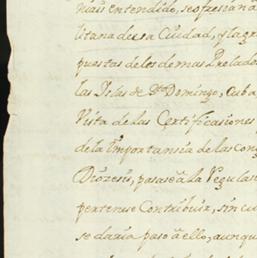 mas entendido, se ofresia n
litana de esa Ciudad, y la gr
puestas de los demas Prelado
las Islas de Sto Domingo, Cuba
Vista de las Certificaciones
de la Importansia de las Con
Diozesis, pasase á la Regulan
pertenese Contribuir, sin cu
se daria paso á ello, aunqu